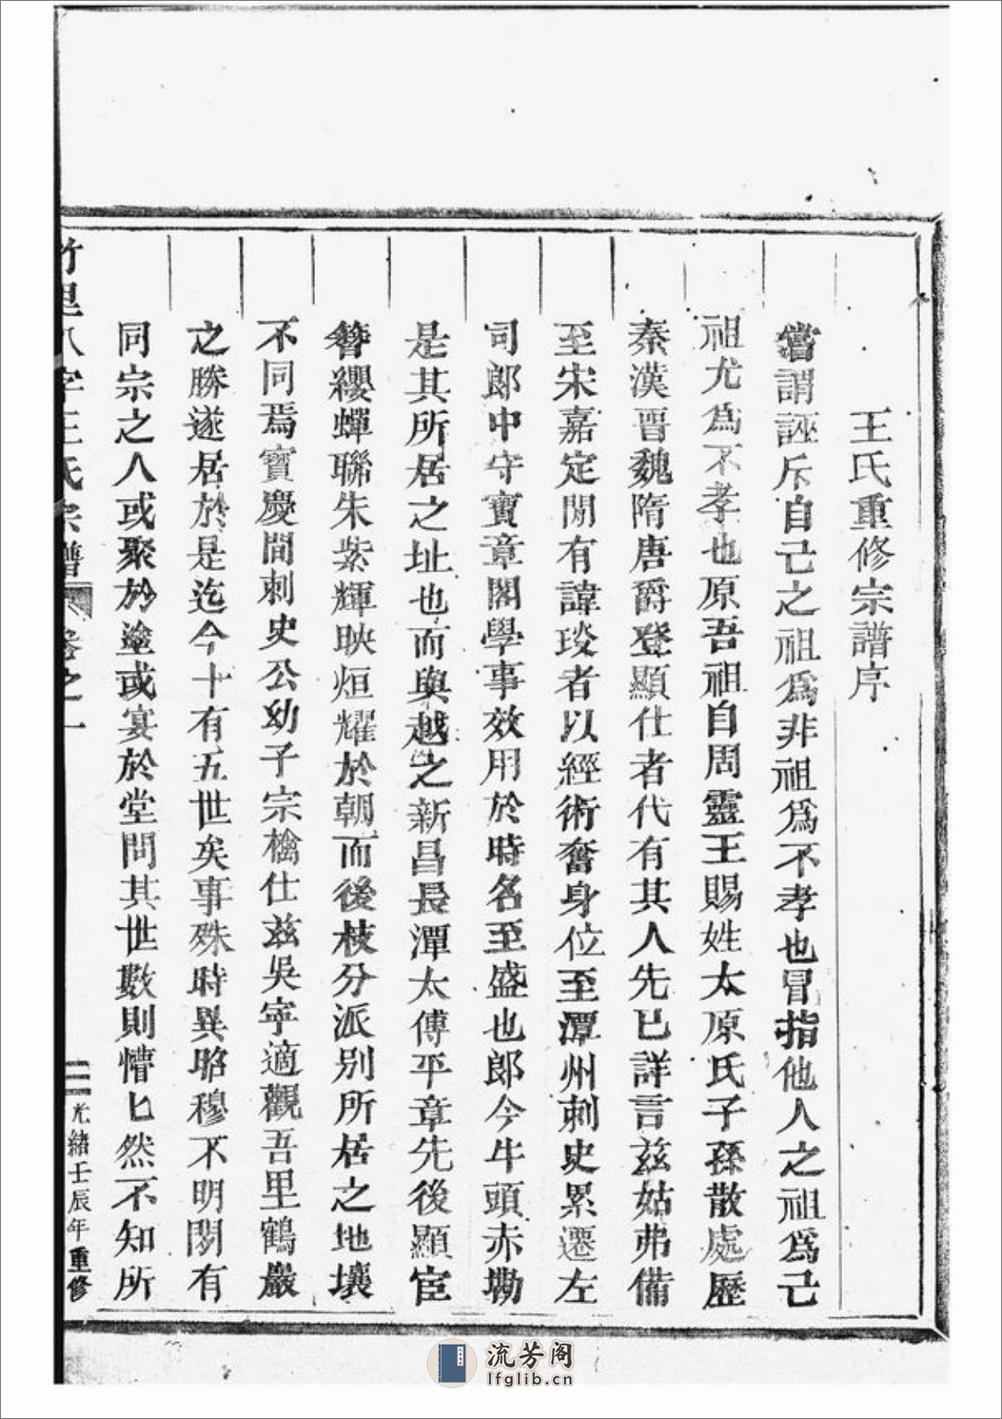 王氏重修宗譜序
嘗謂誣斥自己之祖爲非祖爲不孝也冒指他人之祖爲己
祖尤爲不孝也原吾祖自周靈王賜姓太原氏子孫散處歷
秦漢晋魏隋唐爵登顯仕者代有其人先已詳言兹姑弗備
至宋嘉定間有諱琰者以經術奮身位至潭州刺史累遷左
司郎中守寶章閣學事效用於時名至盛也郎今牛頭赤墈
是其所居之址也而與越之新昌長潭太傅平章先後顯宦
簪纓蟬聯朱紫輝映烜耀於朝而後枝分派别所居之地壤
不同焉寶慶間刺史公幼子宗檎仕兹吳寜適觀吾里鶴巖
之勝遂居於是迄今十有五世矣事殊時異昭穆不明閖有
同宗之人或聚於塗或宴於堂問其世數則懵匕然不知所
竹里八字王氏宗譜 卷之一 二 光緒壬辰年重修
流芳阁
lfglib.cn